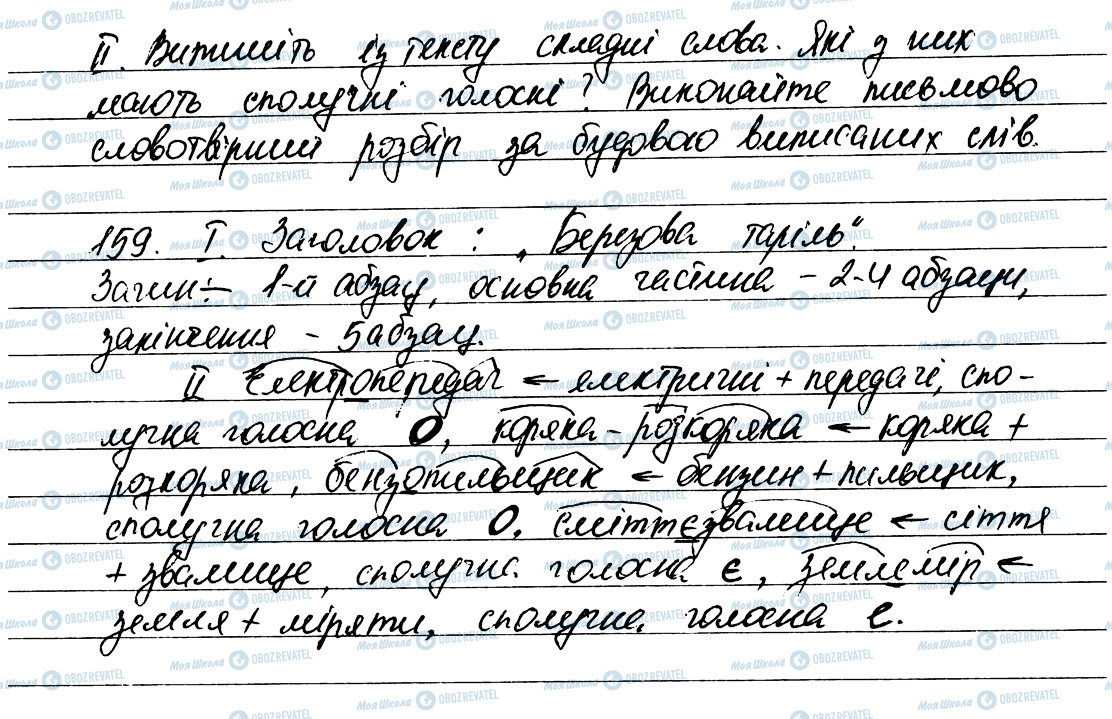 II. Випишіть із тексту складні слова. Які з них
мають сполучні голосні? Виконайте письмово
словотвірний розбір за будовою виписаних слів.
159. I. Заголовок: „Березова таріль".
Зачин:– 1-й абзац, основна частина – 2-4 абзаци,
закінчення – 5 абзац.
II Електропередач ← електричні + передачі, спо-
лучна голосна О, коряка-розкоряка ← коряка +
розкоряка, бензопильщик ← бензин + пильщик,
сполучна голосна О, сміттєзвалище ← сіття
+ звалище, сполучна голосна є, землемір ←
земля + міряти, сполучна голосна е.